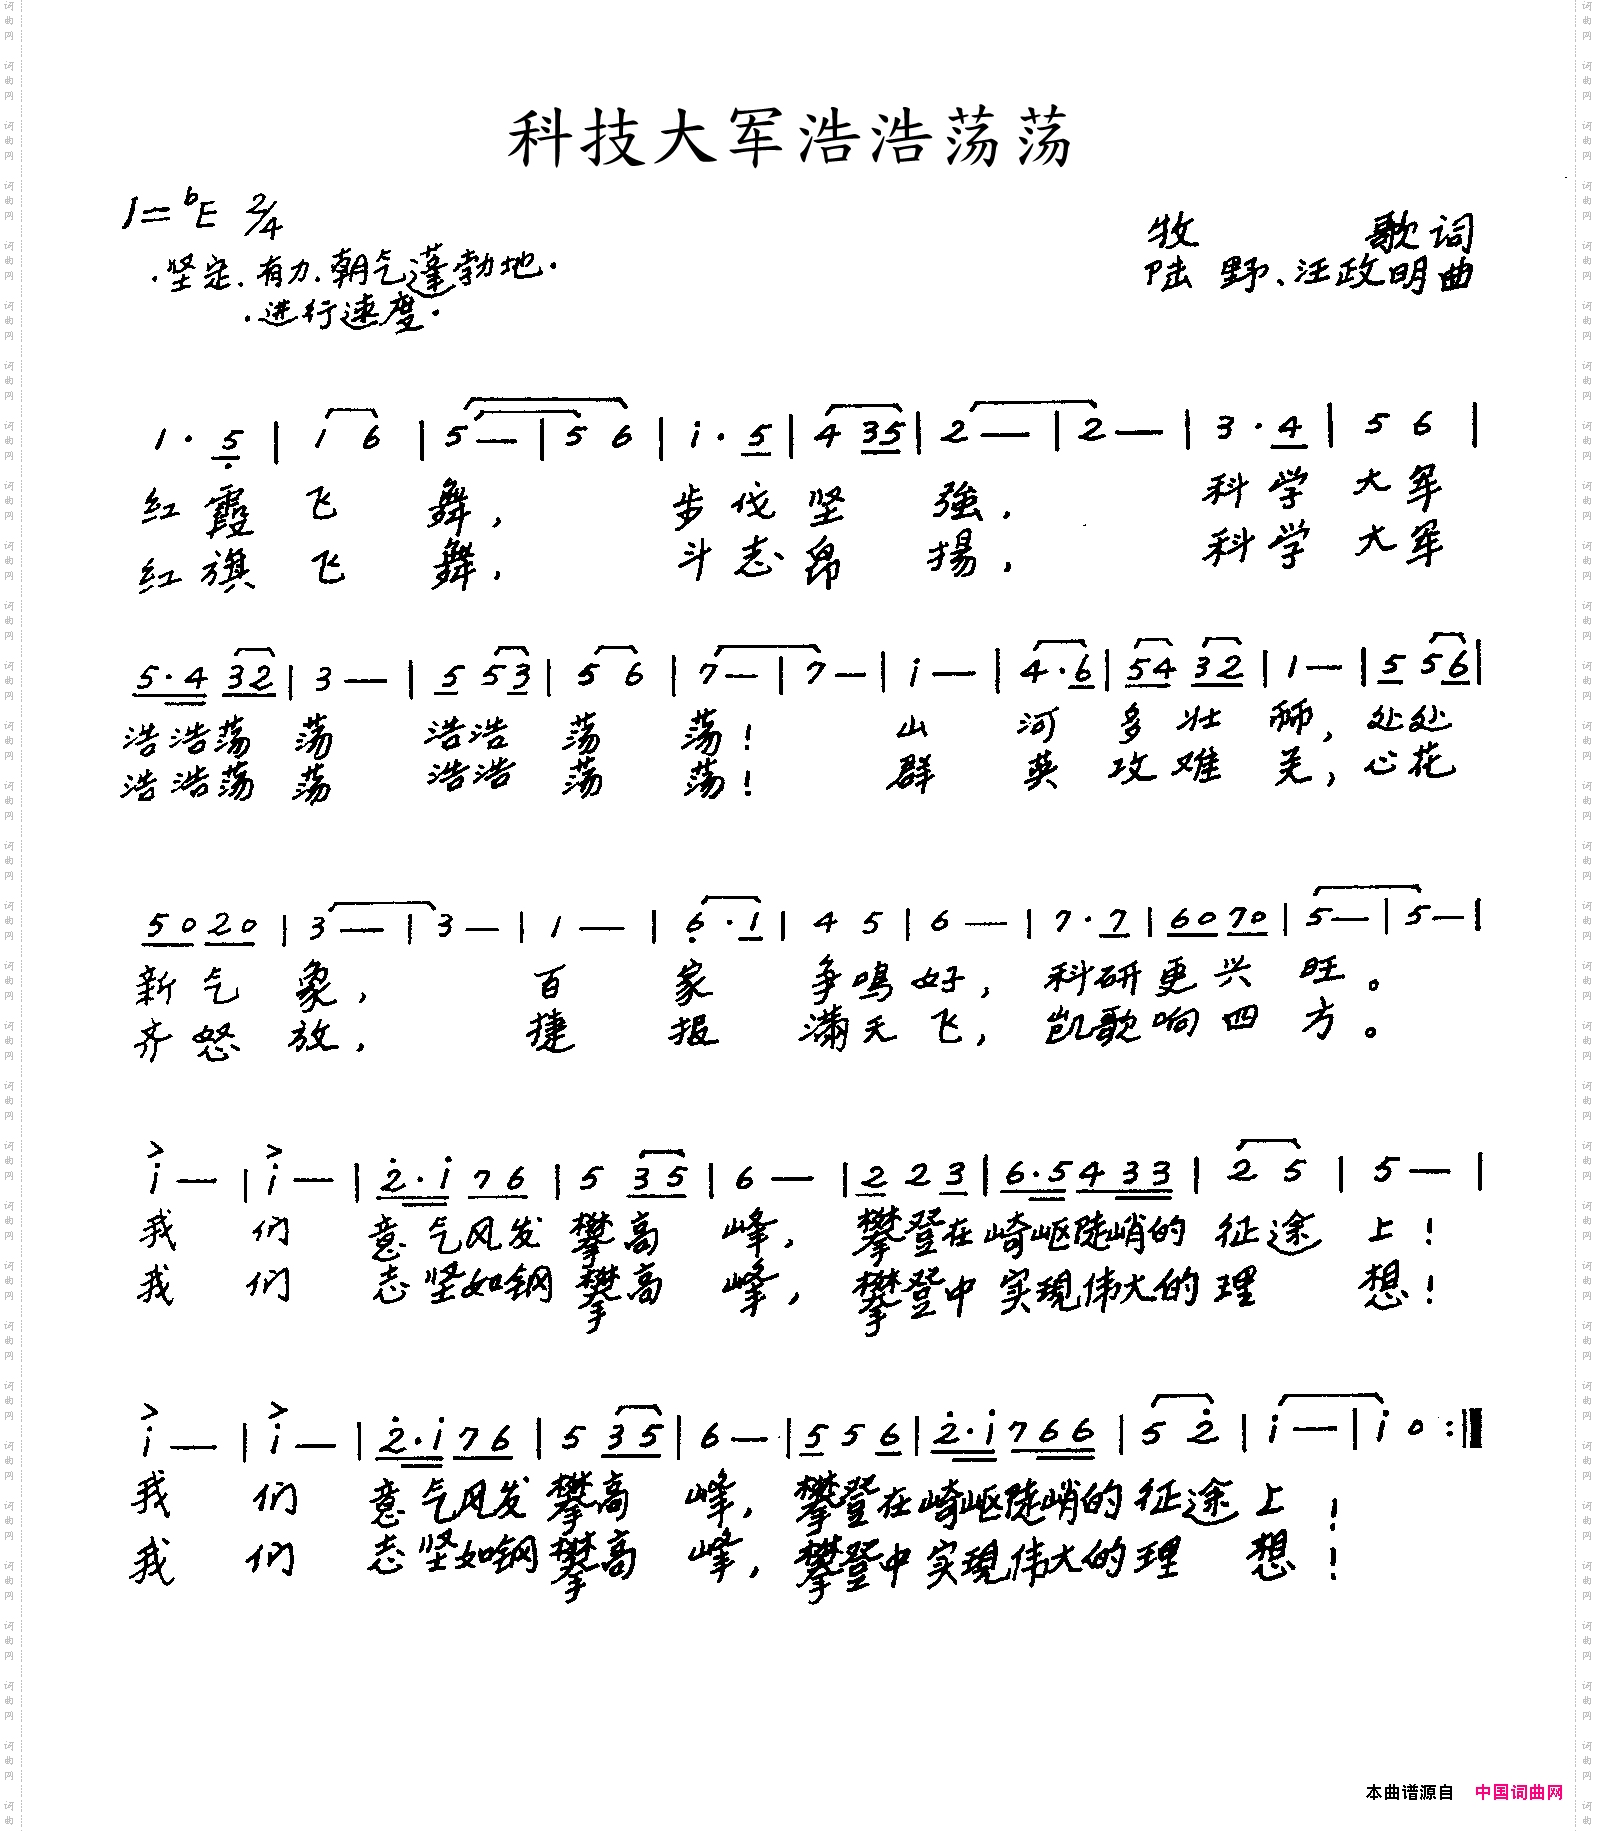 科技大军浩浩荡荡
1=bE 2/4
·坚定、有力、朝气蓬勃地·
·进行速度·
牧 歌词
陆 野、汪政明曲
1 · 5 | 1 6 | 5 — | 5 6 | i · 5 | 4 35 | 2 — | 2 — | 3 · 4 | 5 6 |
红霞飞 舞, 步伐坚 強, 科学 大军
红旗飞 舞, 斗志昂 揚, 科学 大军
5·4 32 | 3 — | 5 53 | 5 6 | 7 — | 7 — | i — | 4·6 | 54 32 | 1 — | 5 56 |
浩浩荡 荡 浩浩 荡 荡! 山 河 多 壮 丽, 处处
浩浩荡 荡 浩浩 荡 荡! 群 英 攻 难 关, 心花
50 20 | 3 — | 3 — | 1 — | 6·1 | 4 5 | 6 — | 7·7 | 60 70 | 5 — | 5 — |
新气 象, 百 家 争鸣好, 科研更兴 旺。
齐怒 放, 捷 报 满天飞, 凯歌响四 方。
> i — | > i — | 2·i 76 | 5 35 | 6 — | 2 2 3 | 6·5 4 33 | 2 5 | 5 — |
我 们 意气风发 攀高 峰, 攀登在崎岖陡峭的 征途 上!
我 们 志坚如钢 攀高 峰, 攀登中 实現伟大的 理 想!
> i — | > i — | 2·i 76 | 5 35 | 6 — | 5 5 6 | 2·i 7 66 | 5 2 | i — | i 0 :‖
我 们 意气风发 攀高 峰, 攀登在崎岖陡峭的 征途上 !
我 们 志坚如钢 攀高 峰, 攀登中 实現伟大的 理 想 !
本曲谱源自 中国词曲网